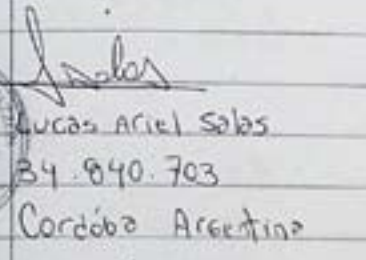 Lucas Ariel Salas
34.840.703
Cordóba Argentina